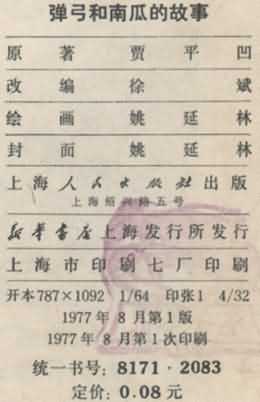 弹弓和南瓜的故事
原著 贾平凹
改编 徐斌
绘画 姚延林
封面 姚延林
上海人民出版社出版
上海绍兴路五号
新华书店上海发行所发行
上海市印刷七厂印刷
开本787×1092 1/64 印张1 4/32
1977年8月第1版
1977年8月第1次印刷
统一书号：8171·2083
定价：0.08元